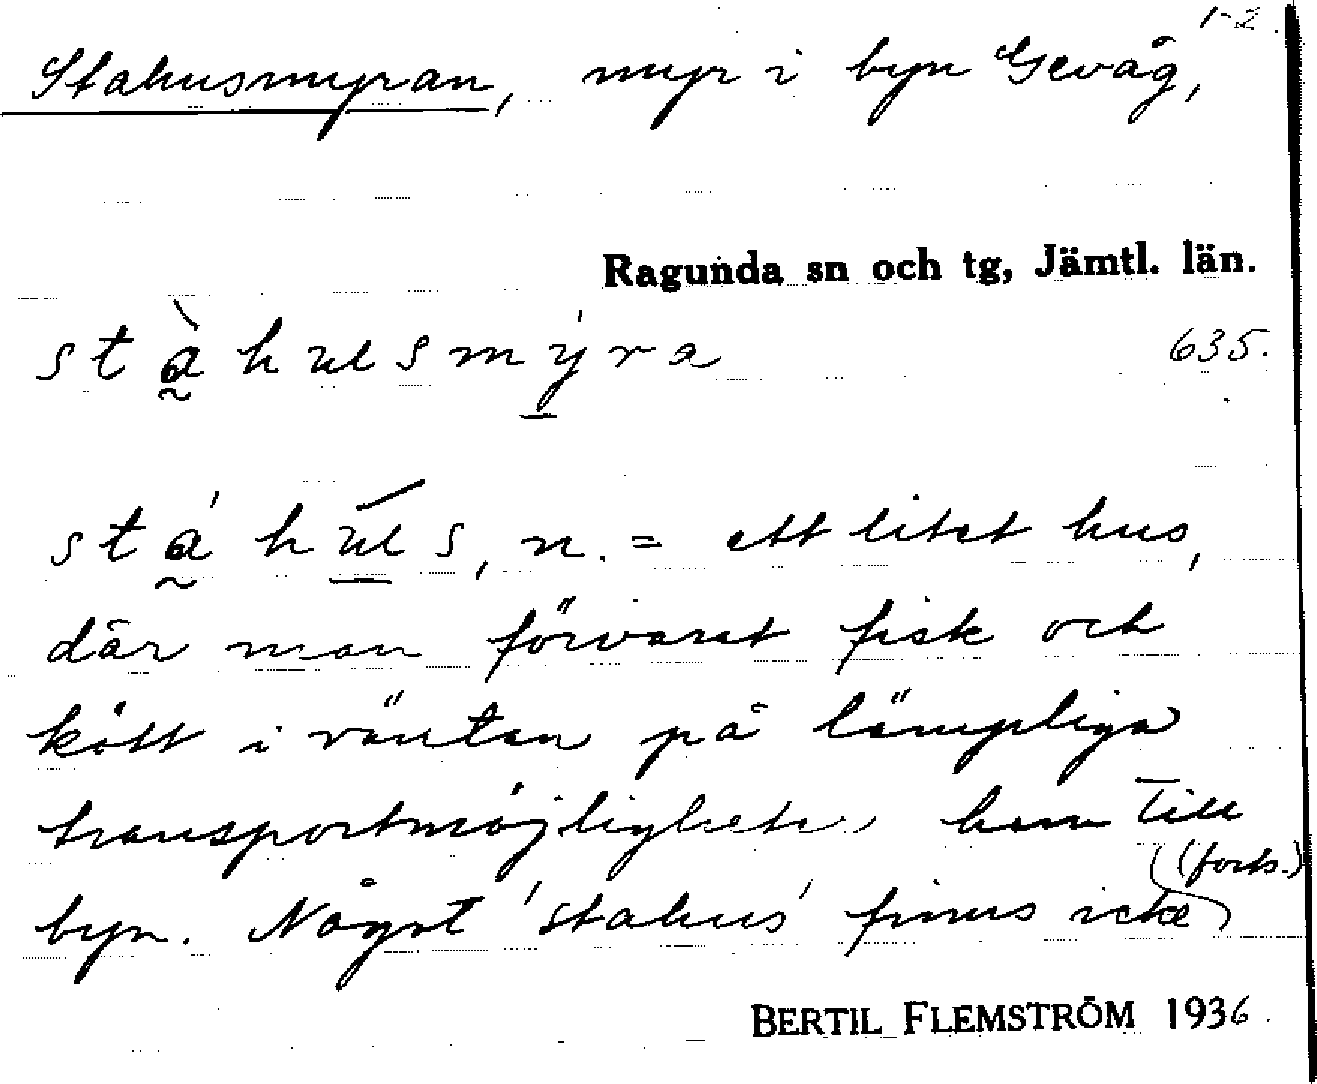 1-2.
Stahusmyran, myr i byn Gevåg,
Ragunda sn och tg, Jämtl. län.
635.
n. = ett litet hus,
där man förvarat fisk och
kött i väntan på lämpliga
transportmöjligheter hem till
byn. Något 'stahus' finns icke
(forts.)
BERTIL FLEMSTRÖM 1936.